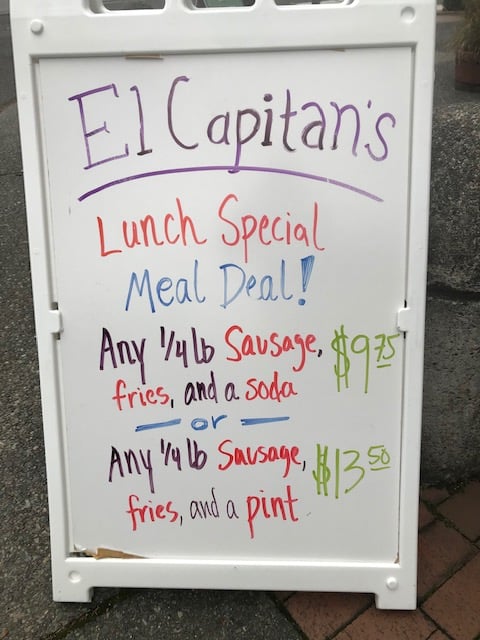 El Capitan's
Lunch Special
Meal Deal!
Any 1/4 lb Sausage, $9.75
fries, and a soda
— or —
Any 1/4 lb Sausage, $13.50
fries, and a pint